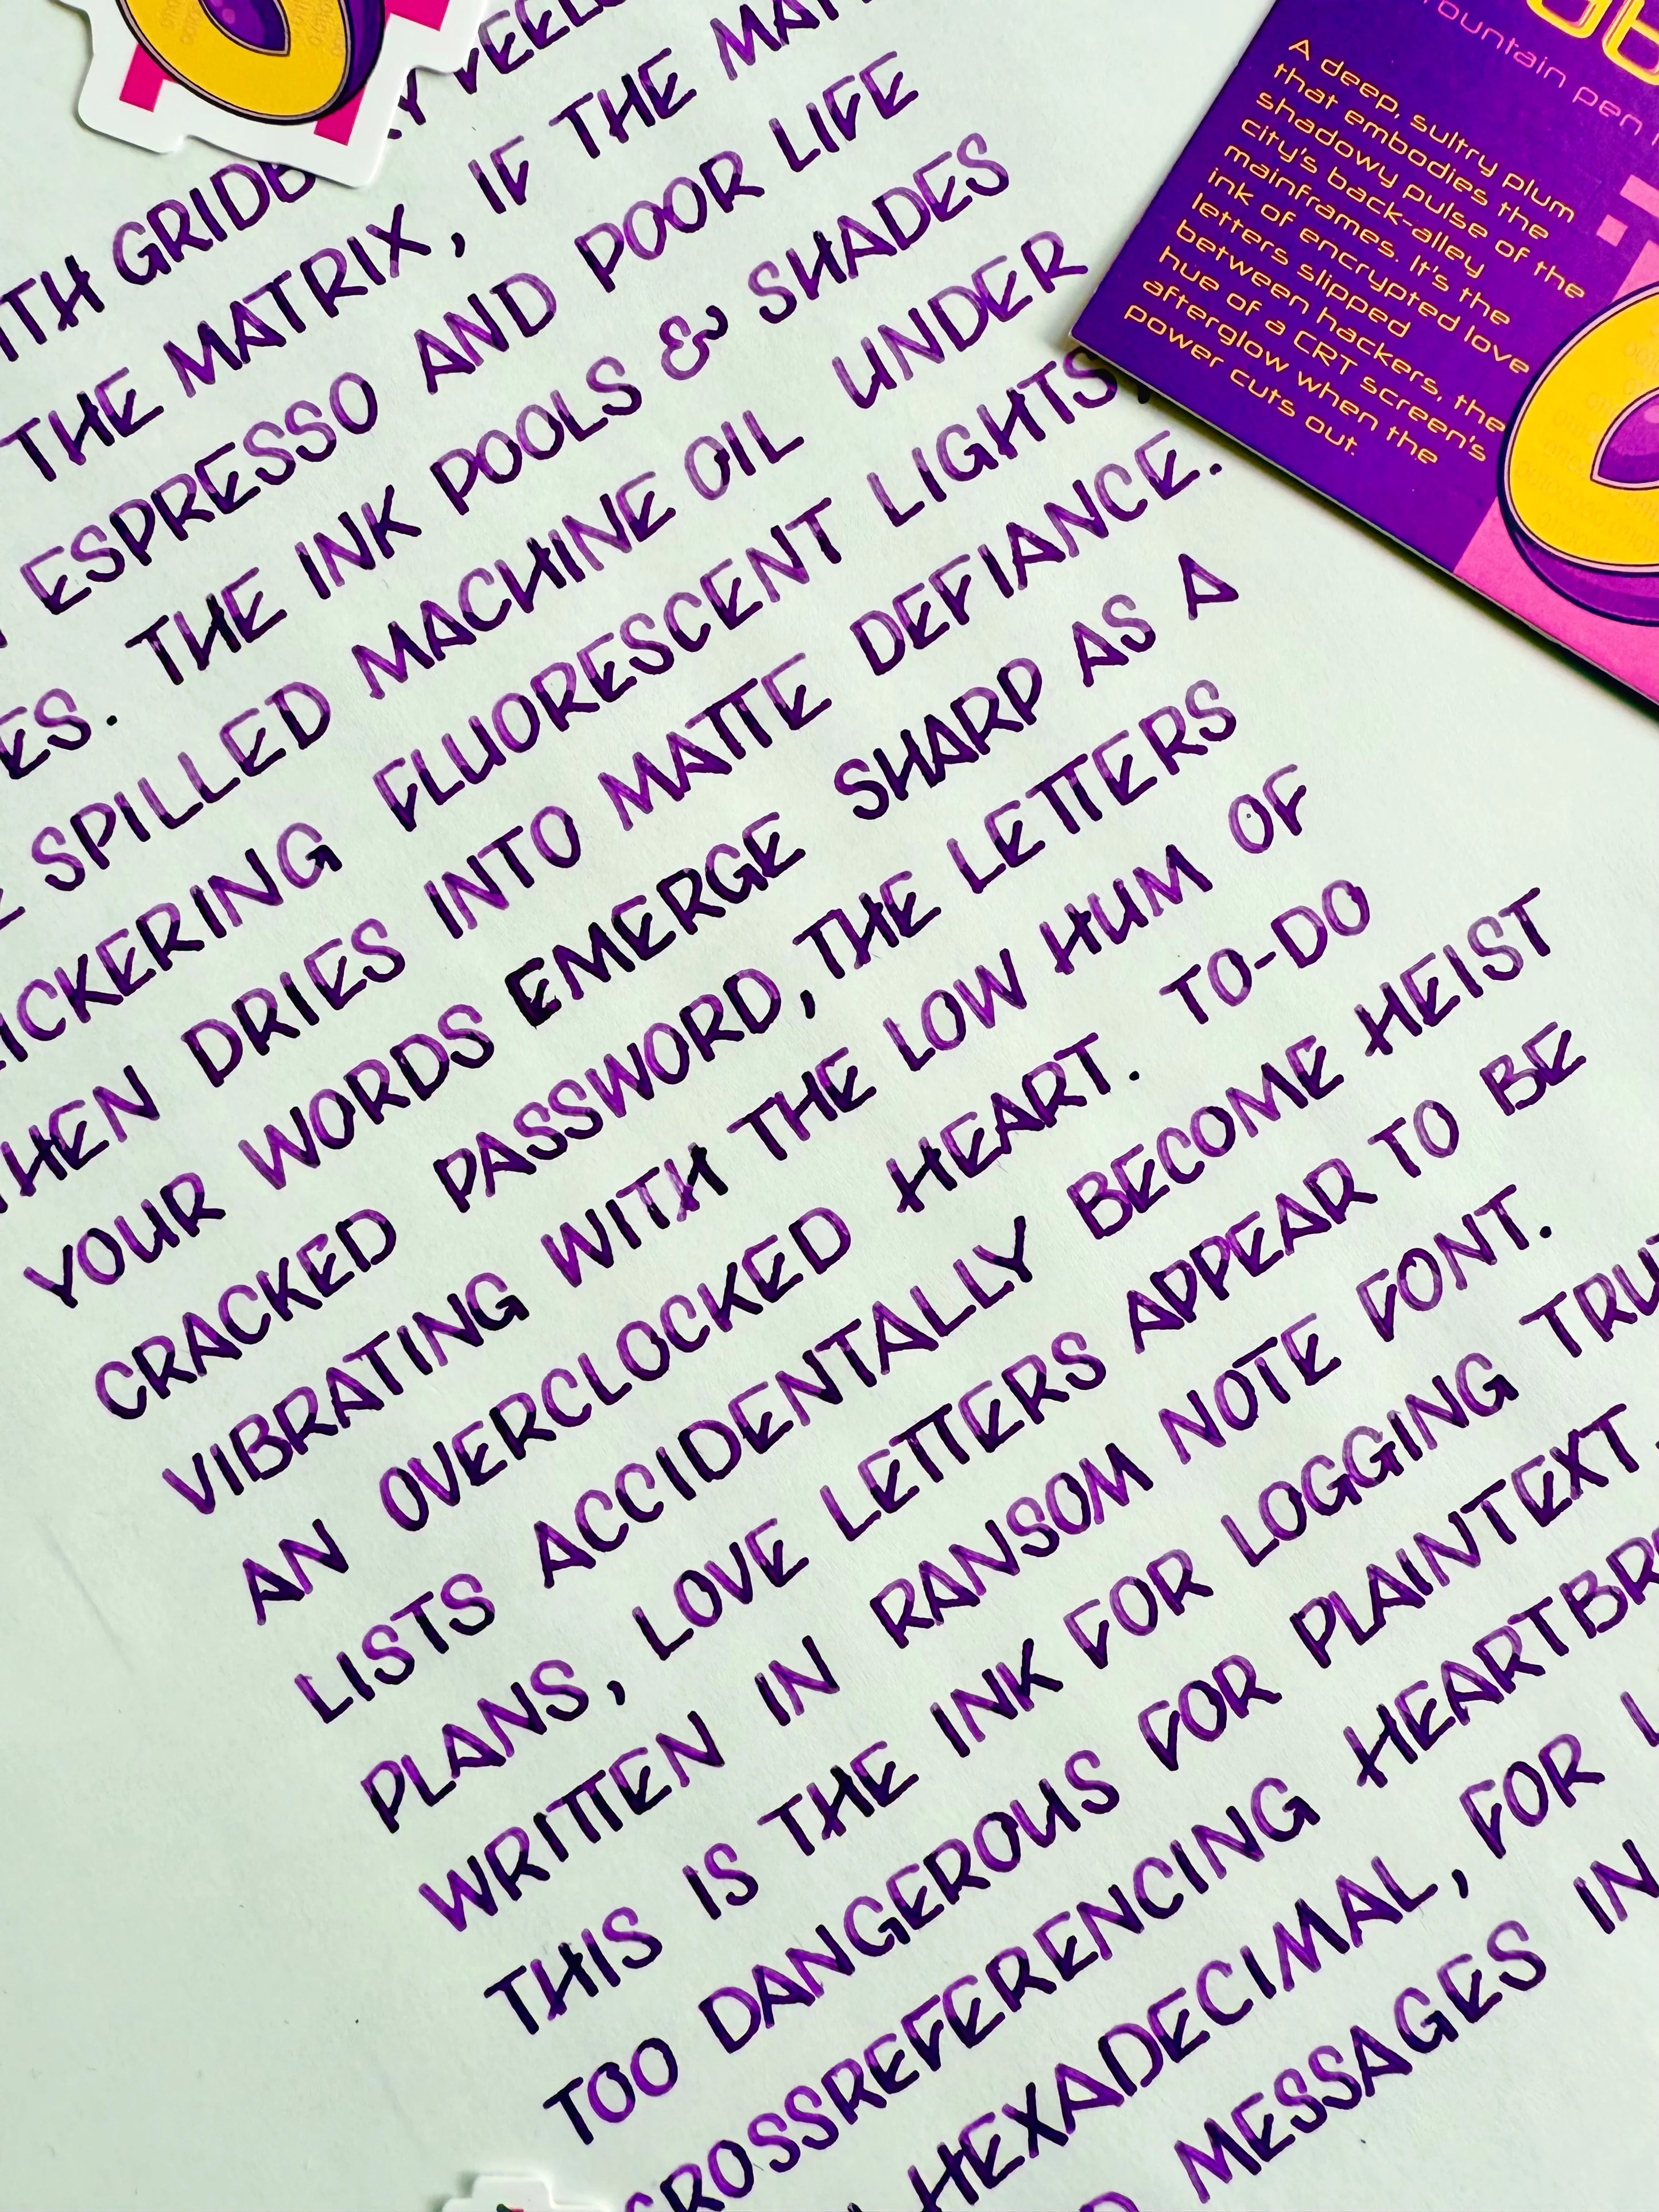 GRIDB
THE MATRIX, IF THE
ESPRESSO AND POOR LIFE
THE INK POOLS & SHADES
SPILLED MACHINE OIL UNDER
FLUORESCENT LIGHTS,
DRIES INTO MATTE DEFIANCE.
YOUR WORDS EMERGE SHARP AS A
CRACKED PASSWORD, THE LETTERS
VIBRATING WITH THE LOW HUM OF
AN OVERCLOCKED HEART. TO-DO
LISTS ACCIDENTALLY BECOME HEIST
PLANS, LOVE LETTERS APPEAR TO BE
WRITTEN IN RANSOM NOTE FONT.
THIS IS THE INK FOR LOGGING TRU
TOO DANGEROUS FOR PLAINTEXT,
CROSSREFERENCING HEARTBR
HEXADECIMAL, FOR L
MESSAGES IN
fountain pen
A deep, sultry plum
that embodies the
shadowy pulse of the
city's back-alley
mainframes. It's the
ink of encrypted love
letters slipped
between hackers, the
hue of a CRT screen's
afterglow when the
power cuts out.